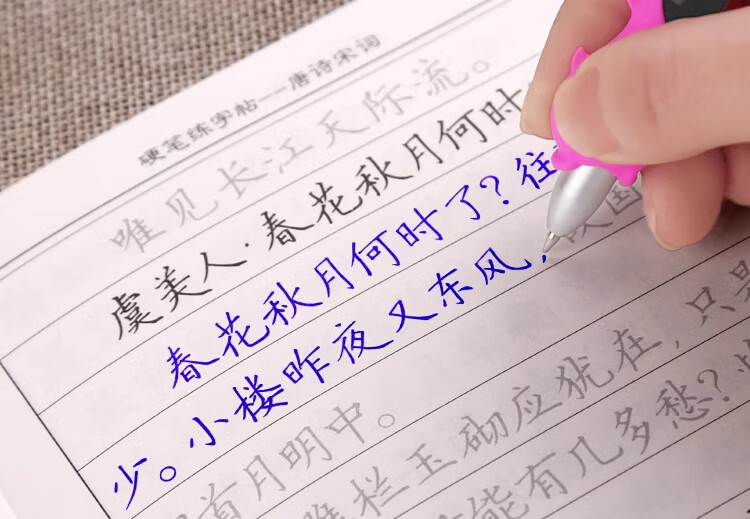 硬笔练字帖——唐诗宋词
唯见长江天际流。
虞美人·春花秋月何时
春花秋月何时了？往
少。小楼昨夜又东风，故国
首月明中。
雕栏玉砌应犹在，只是
能有几多愁？恰